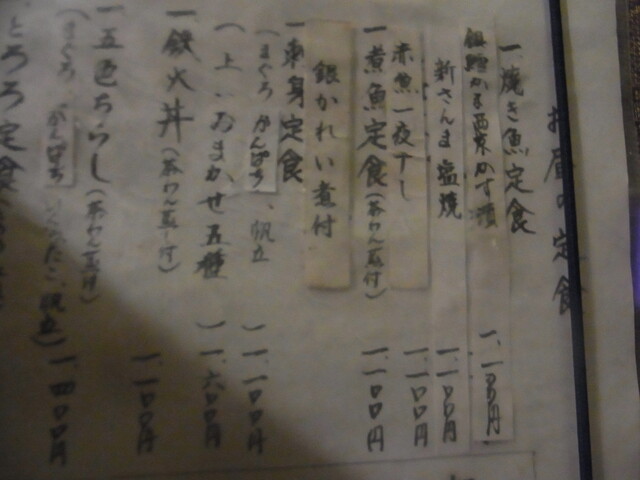 お昼の定食
一、焼き魚定食
銀鱈かる西京かす漬 一、一〇〇円
新さんま塩焼 一、一〇〇円
赤魚一夜干し 一、一〇〇円
一、煮魚定食(茶わん蒸し付) 一、一〇〇円
銀かれい煮付
一、刺身定食
(まぐろ、かんぱち、帆立) 一、一〇〇円
(上、おまかせ五種) 一、六〇〇円
一、鉄火丼(茶わん蒸し付) 一、一〇〇円
一、五色ちらし(茶わん蒸し付)
(まぐろ、かんぱち、いくら、たこ、帆立) 一、四〇〇円
とろろ定食